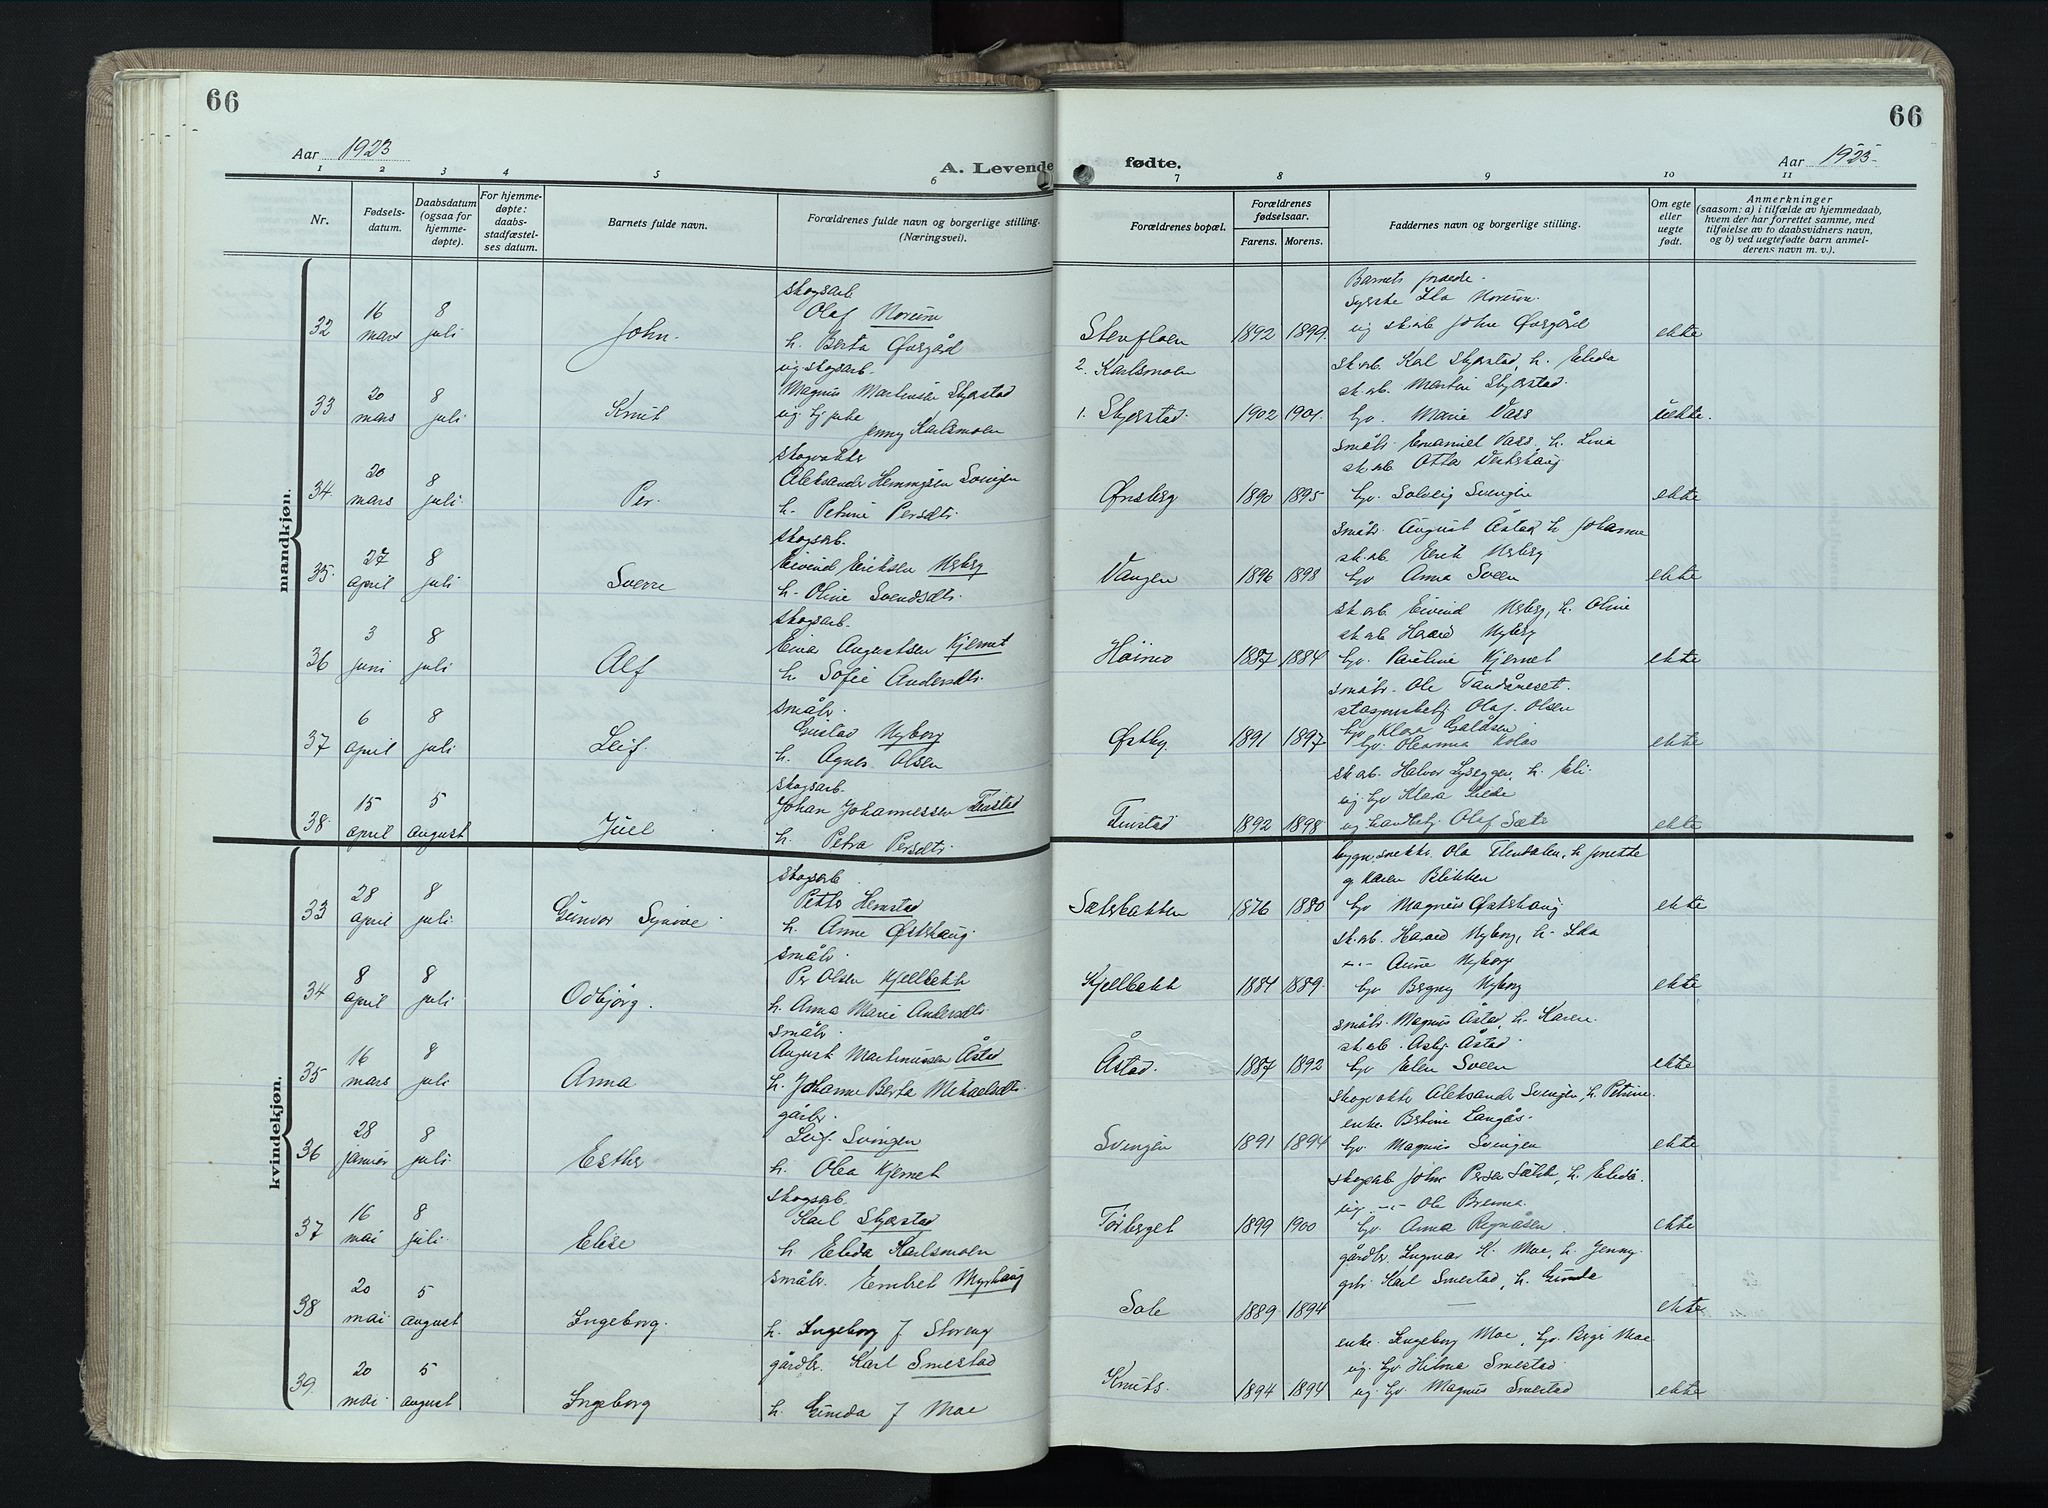 66
66
Aar 1923
A. Levende fødte.
Aar 1923
1 2 3 4 5 6 7 8 9 10 11
Nr.
Fødsels-
datum.
Daabsdatum
(ogsaa for
hjemme-
døpte).
For hjemme-
døpte:
daabs-
stadfæstel-
ses datum.
Barnets fulde navn.
Forældrenes fulde navn og borgerlige stilling.
(Næringsvei).
Forældrenes bopæl.
Forældrenes
fødselsaar.
Farens. Morens.
Faddernes navn og borgerlige stilling.
Om egte
eller
uegte
født.
Anmerkninger
(saasom: a) i tilfælde av hjemmedaab,
hvem der har forrettet samme, med
tilføielse av to daabsvidners navn,
og b) ved uegtefødte barn anmel-
derens navn m. v.).
mandkjøn.
32 16 mars 8 juli John.
skogsarb
Olaf Noreim
h. Berta Øvergård
Stenfloen 1892 1899.
Barnets
syerske Ida Noreim.
ug sk.arb John Øvergård
ekte
33 20 mars 8 juli Knut
ug. skogsarb.
Magnus Martinsen Skjerstad
ug. tj. pike
Jenny Karlsmoen
2. Karlsmoen
1. Skjerstad. 1902 1901.
sk.arb. Karl Skjerstad, h. Elida
sk.arb. Martin Skjerstad.
tjv. Marie Vass
uekte.
34 20 mars 8 juli Per.
skogvokter
Aleksander Hemmingsen Svingen
h. Petrine Persdtr.
Ønsberg 1890 1895
småbr. Emanuel Vass, h. Lina
sk.arb. Otto
tjv. Solveig Svingen
ekte
35. 27 april 8 juli Sverre
skogsarb.
Eivind Eriksen Nyberg
h. Oline Svendsdtr.
Vangen 1896 1898
småbr August Åstad h. Johanne
sk.arb. Erik Nyberg
tjv Anna Sveen
ekte
36 3 juni 8 juli Alf
skogsarb.
Einar Augustsen Kjernet
h. Sofie Andersdtr.
Høimo 1887 1884
sk.arb. Eivind Nyberg, h. Oline
sk.arb. Harald Nyberg
tjv. Pauline Kjernet
ekte
37 6 april 8 juli Leif.
småbr.
Gustav Nyborg
h. Agnes Olsen
Østby. 1891 1897
småbr. Ole Tandåneset.
Olaf Olsen
tjv Klara Galåsen
tjv. Oleanna Kolos
ekte
38. 15 april 5 august Juel
skogsarb.
Johan Johannessen Finstad
h. Petra Persdtr.
Finstad 1892 1898.
sk.arb. Halvor Lysegger, h. Eli.
ug. tjv Klara Lilde
ug. Olaf Sætr
ekte
kvindekjøn.
33 28 april 8 juli Gunvor Synøve
skogsarb.
Petter Hemstad
h. Anne Østshaug
Sætsbakken 1876 1880
bygn.snekkr. Ola Flendalen, h Jonette
og Karen Blikken
tjv. Magnus Østshaug
ekte
34 8 april 8 juli Odbjörg.
småbr.
Per Olsen Kjellbekk
h. Anna Marie Andersdtr.
Kjellbekk 1884 1889.
sk.arb. Harald Nyborg, h. Ida
-"- Anne Nyborg
tjv. Bergny Nyborg
ekte
35 16 mars 8 juli Anna
småbr.
August Martinussen Åstad
h. Johanne Berta Mikaelsdtr.
Åstad. 1887 1892
småbr. Magnus Åstad, h. Karen.
sk.arb. Asbj. Åstad.
tjv. Elen Sveen
ekte
36 28 januar 8 juli. Esther
gårbr.
Leif. Svingen
h. Olea Kjernet
Svingen 1891 1894
skogvokter Aleksander Svingen, h. Petrine.
enke. Bertine Langås
tjv. Magnus Svingen
ekte
37 16 mai 8 juli. Elise
skogsarb.
Karl Skjerstad
h Elida Karlsmoen
Törberget 1899 1900
skogarb John Persen Sætre, h. Elida.
ug. -"- Ole Brenna.
tjv. Anna Regnåsen
ekte
38 20 mai 5 august Ingeborg.
småbr. Embret Myrhaug
h. Ingeborg J Storeng
Sole 1889. 1894
gårdbr. Ingvar K. Moe, h. Jenny.
gbr. Karl Smestad, h. Gunda
—
ekte
39. 20 mai. 5 august Ingeborg
gårdbr. Karl Smestad
h. Gunda J Moe
Knuts. 1894 1894
enke. Ingeborg Moe, tjv. Birgit Moe
ug. tjv Hilma Smestad.
ug. tjv. Magnus Smestad
ekte